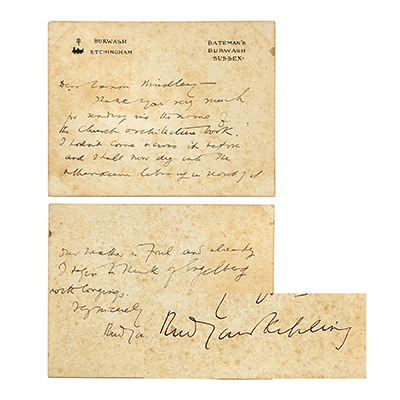 BURWASH
ETCHINGHAM
BATEMAN'S
BURWASH
SUSSEX
Dear Canon Hindley –
Thank you very much
for sending me the name of
the Church architecture book.
I hadn't come across it before
and I shall now dig into the
Athenaeum library in search of it
Our weather is foul and already
I begin to think of Engelberg
with longings.
Very sincerely
Rudya
Rudyard Kipling